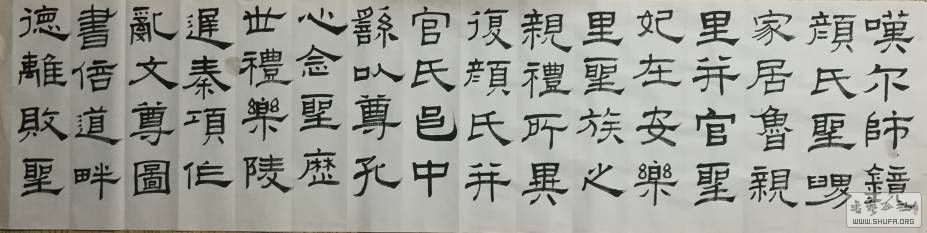 嘆尔師鏡
顔氏聖舅
家居魯親
里并官聖
妃在安樂
里聖族之
親禮所異
復顔氏并
官氏邑中
繇以尊孔
心念聖歷
世禮樂陵
遲秦項作
亂文尊圖
書倍道畔
德離敗聖
WWW.SHUFA.ORG